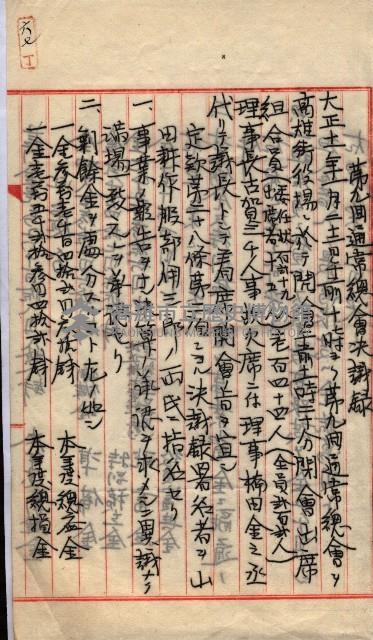 第九回通常總會決議録
大正十一年一月二十三日午前十時ヨリ第九回通常總會ヲ
高雄街役場ニ於テ開會午前十時三十分開會出席
組合員(委任状共)壱百四十四人(全員人)
理事長古賀三千人事故欠席ニ付理事梅田金之丞
代リテ議長トシテ着席開會ノ旨ヲ宣シ
定款第二十八條第項ニヨル決議録署名者ヲ山
田耕作服部伊三郎ノ両氏ニ指名セリ
一、事業ノ報告ヲナシ決算ノ承認ヲ求メシニ異議ナク
満場一致之ヲ承認セリ
二、剰餘金ヲ處分スルコト左ノ如シ
一金参萬壱千百四拾弐円六拾銭 本年度總益金
一金壱萬壱千弐拾参円四拾弐銭 本年度總損金